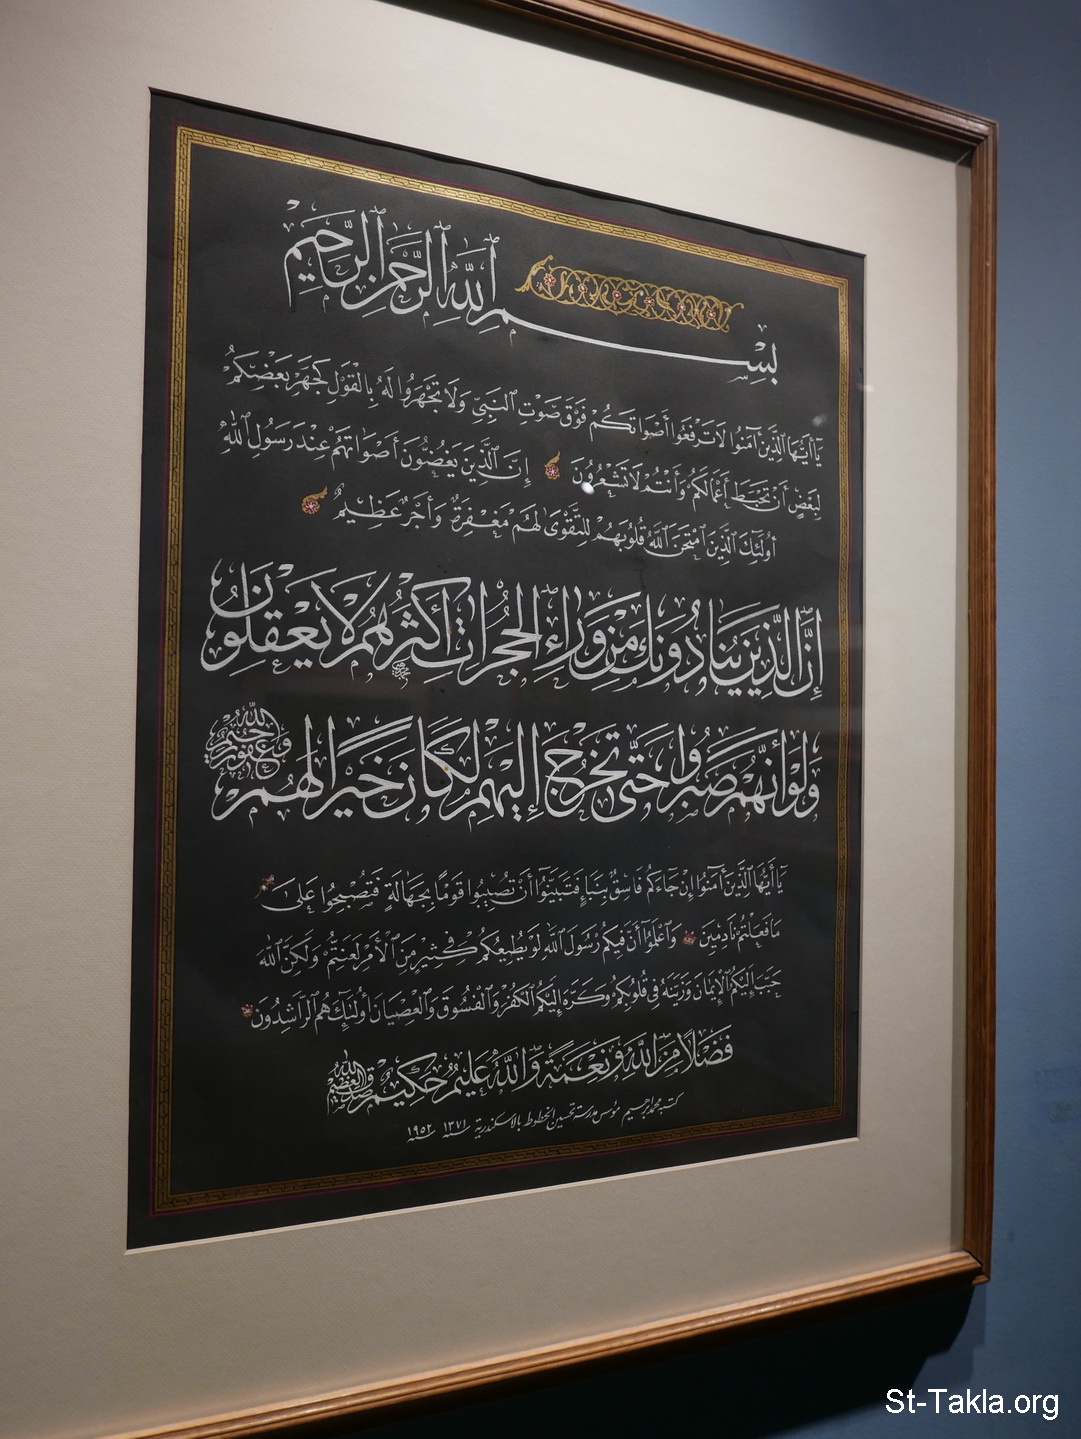 بِسْمِ ٱللَّهِ ٱلرَّحْمَنِ ٱلرَّحِيمِ
يَا أَيُّهَا الَّذِينَ آمَنُوا لَا تَرْفَعُوا أَصْوَاتَكُمْ فَوْقَ صَوْتِ ٱلنَّبِيِّ وَلَا تَجْهَرُوا لَهُ بِالْقَوْلِ كَجَهْرِ بَعْضِكُمْ
لِبَعْضٍ أَنْ تَحْبَطَ أَعْمَالُكُمْ وَأَنْتُمْ لَا تَشْعُرُونَ إِنَّ ٱلَّذِينَ يَغُضُّونَ أَصْوَاتَهُمْ عِنْدَ رَسُولِ ٱللَّهِ
أُولَئِكَ الَّذِينَ ٱمْتَحَنَ ٱللَّهُ قُلُوبَهُمْ لِلتَّقْوَى لَهُمْ مَغْفِرَةٌ وَأَجْرٌ عَظِيمٌ
إِنَّ الَّذِينَ يُنَادُونَكَ مِنْ وَرَاءِ الْحُجُرَاتِ أَكْثَرُهُمْ لَا يَعْقِلُونَ
وَلَوْ أَنَّهُمْ صَبَرُوا حَتَّى تَخْرُجَ إِلَيْهِمْ لَكَانَ خَيْرًا لَهُمْ وَٱللَّهُ غَفُورٌ رَحِيمٌ
يَا أَيُّهَا الَّذِينَ آمَنُوا إِنْ جَاءَكُمْ فَاسِقٌ بِنَبَإٍ فَتَبَيَّنُوا أَنْ تُصِيبُوا قَوْمًا بِجَهَالَةٍ فَتُصْبِحُوا عَلَى
مَا فَعَلْتُمْ نَادِمِينَ وَٱعْلَمُوا أَنَّ فِيكُمْ رَسُولَ ٱللَّهِ لَوْ يُطِيعُكُمْ فِي كَثِيرٍ مِنَ ٱلْأَمْرِ لَعَنِتُّمْ وَلَكِنَّ ٱللَّهَ
حَبَّبَ إِلَيْكُمُ الْإِيمَانَ وَزَيَّنَهُ فِي قُلُوبِكُمْ وَكَرَّهَ إِلَيْكُمُ ٱلْكُفْرَ وَٱلْفُسُوقَ وَٱلْعِصْيَانَ أُولَئِكَ هُمُ ٱلرَّاشِدُونَ
فَضْلًا مِنَ ٱللَّهِ وَنِعْمَةً وَٱللَّهُ عَلِيمٌ حَكِيمٌ صدق الله العظيم
كتبه محمد ابراهيم مؤسس مدرسة تحسين الخطوط بالاسكندرية سنة ١٣٧١ سنة ١٩٥٢
St-Takla.org